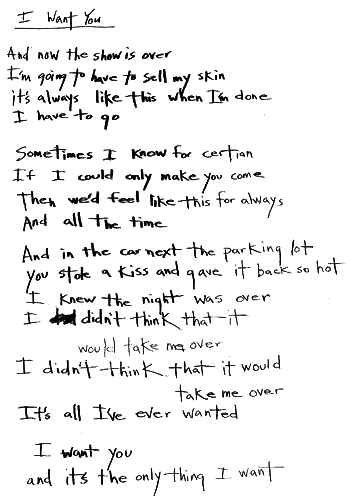 I Want You
And now the show is over
I'm going to have to sell my skin
it's always like this when I'm done
I have to go
Sometimes I know for certian
If I could only make you come
Then we'd feel like this for always
And all the time
And in the car next the parking lot
you stole a kiss and gave it back so hot
I knew the night was over
I didn't think that it
would take me over
I didn't think that it would
take me over
It's all I've ever wanted
I want you
and it's the only thing I want